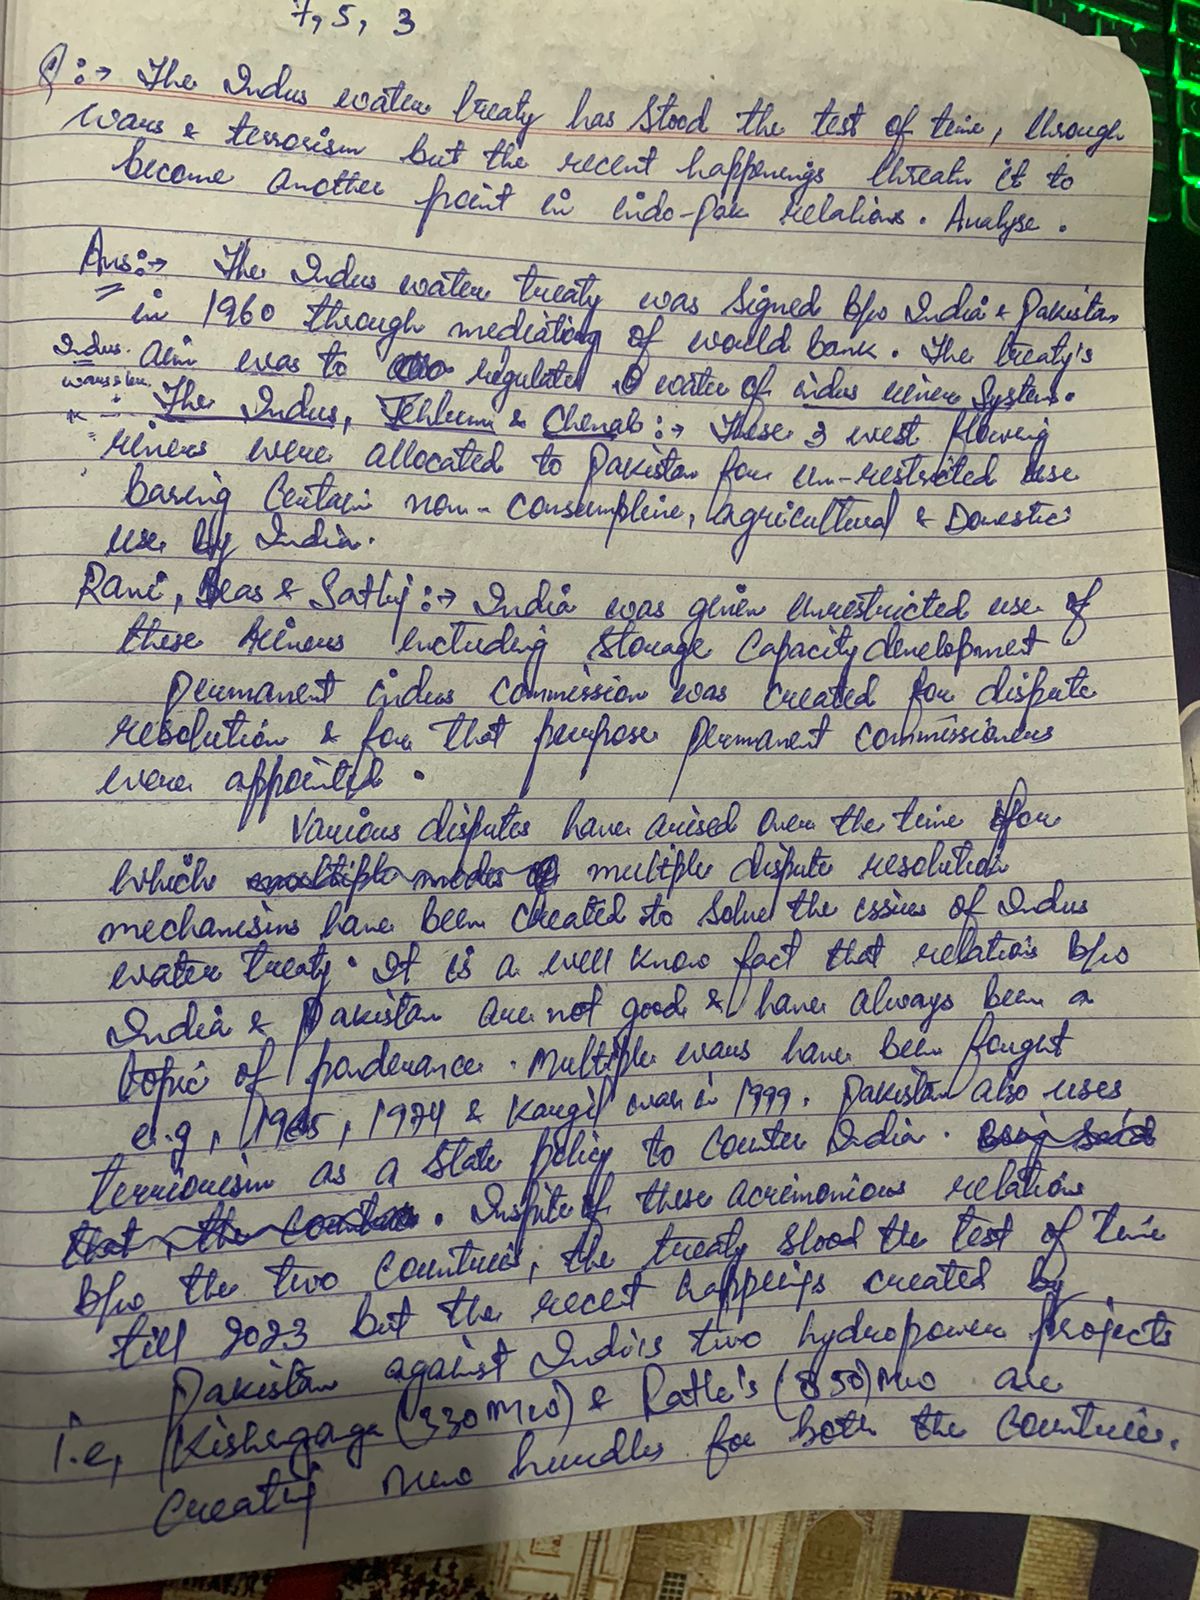 7, 5, 3
Q:→ The Indus water treaty has stood the test of time, through
wars & terrorism but the recent happenings threatn it to
become another point in indo-pak relations. Analyse.
Ans:→ The Indus water treaty was signed b/w India & Pakistan
in 1960 through mediating of world bank. The treaty's
Indus. aim was to regulate water of indus river system.
The Indus, Jehlum & Chenab:→ These 3 west flowing
rivers were allocated to Pakistan for un-restricted use
baring certain non-consumptive, agricultural & Domestic
use by India.
Ravi, Beas & Satluj:→ India was given unrestricted use of
these rivers including storage capacity development
permanent indus commission was created for dispute
resolution & for that purpose permanent commissioners
were appointed.
Various disputes have arised over the time for
which multiple modes of multiple dispute resolution
mechanisms have been created to solve the issues of Indus
water treaty. It is a well know fact that relations b/w
India & Pakistan are not good & have always been a
topic of ponderance. Multiple wars have been fought
e.g, 1965, 1974 & Kargil war in 1999. Pakistan also uses
terriorism as a state policy to counter India. being said
that, the countries. Inspite of these acrimonious relations
b/w the two countries, the treaty stood the test of time
till 2023 but the recent happings created by
Pakistan against India's two hydropower projects
i.e, Kishnganga (330 MW) & Ratle's (850) MW are
creating new hurdles for both the countries.